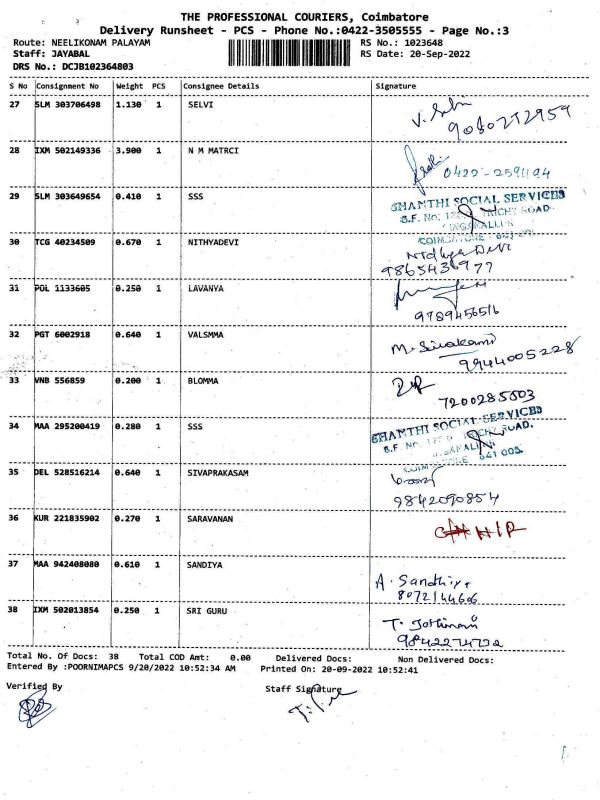 THE PROFESSIONAL COURIERS, Coimbatore
Delivery Runsheet - PCS - Phone No.:0422-3505555 - Page No.:3
Route: NEELIKONAM PALAYAM RS No.: 1023648
Staff: JAYABAL RS Date: 20-Sep-2022
DRS No.: DCJB102364803
S No Consignment No Weight PCS Consignee Details Signature
27 SLM 303706498 1.130 1 SELVI
28 IXM 502149336 3.900 1 N M MATRCI
0422-2591194
29 SLM 303649654 0.410 1 SSS
SHANTHI SOCIAL SERVICES
30 TCG 40234509 0.670 1 NITHYADEVI
Nithya Devi
9865436977
31 POL 1133605 0.250 1 LAVANYA
9789456516
32 PGT 6002918 0.640 1 VALSMMA
M. Sivakami
9944005228
33 VNB 556859 0.200 1 BLOMMA
7200285503
34 MAA 295200419 0.280 1 SSS
SHANTHI SOCIAL SERVICES
35 DEL 528516214 0.640 1 SIVAPRAKASAM
9842090854
36 KUR 221835902 0.270 1 SARAVANAN
37 MAA 942408080 0.610 1 SANDIYA
A. Sandhiya
8072144606
38 IXM 502013854 0.250 1 SRI GURU
T. Jothimani
9842274732
Total No. Of Docs: 38 Total COD Amt: 0.00 Delivered Docs: Non Delivered Docs:
Entered By :POORNIMAPCS 9/20/2022 10:52:34 AM Printed On: 20-09-2022 10:52:41
Verified By Staff Signature